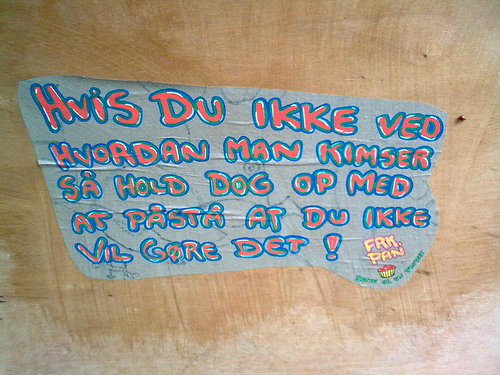 HVIS DU IKKE VED
HVORDAN MAN KIMSER
SÅ HOLD DOG OP MED
AT PÅSTÅ AT DU IKKE
VIL GØRE DET !
FRK.
PAN